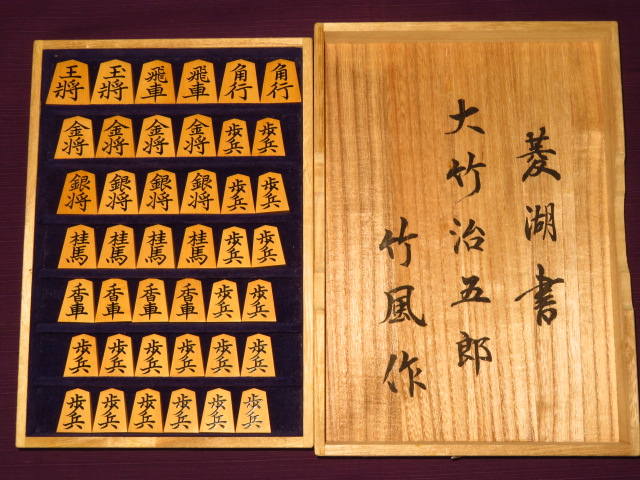 王将 玉将 飛車 飛車 角行 角行
金将 金将 金将 金将 歩兵 歩兵
銀将 銀将 銀将 銀将 歩兵 歩兵
桂馬 桂馬 桂馬 桂馬 歩兵 歩兵
香車 香車 香車 香車 歩兵 歩兵
歩兵 歩兵 歩兵 歩兵 歩兵 歩兵
歩兵 歩兵 歩兵 歩兵 歩兵 歩兵
菱湖書
大竹治五郎
竹風作